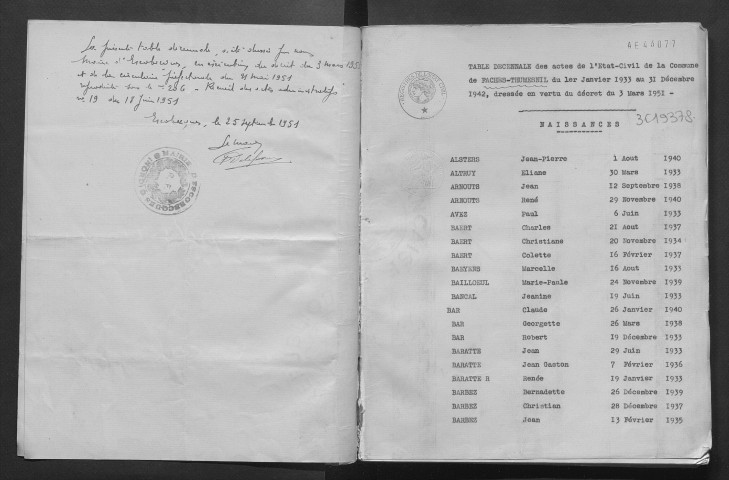 La présente table décennale, a été dressée par nous
Maire d'Escobecques, en exécution du décret du 3 mars 1951
et de la circulaire préfectorale du 21 mai 1951
reproduite sous le n° 206 - Recueil des actes administratifs
n° 19 du 18 Juin 1951
Escobecques, le 25 Septembre 1951
Le Maire
AE4A077
TABLE DECENNALE des actes de l'Etat-Civil de la Commune
de FACHES-THUMESNIL du 1er Janvier 1933 au 31 Décembre
1942, dressée en vertu du décret du 3 Mars 1951 -
NAISSANCES 3C19378
ALSTERS Jean-Pierre 1 Aout 1940
ALTRUY Eliane 30 Mars 1933
ARNOUTS Jean 12 Septembre 1938
ARNOUTS René 29 Novembre 1940
AVEZ Paul 6 Juin 1933
BAERT Charles 21 Aout 1937
BAERT Christiane 20 Novembre 1934
BAERT Colette 16 Février 1937
BAEYENS Marcelle 16 Aout 1933
BAILLOEUL Marie-Paule 24 Novembre 1939
BANCAL Jeanine 19 Juin 1933
BAR Claude 26 Janvier 1940
BAR Georgette 26 Mars 1938
BAR Robert 19 Décembre 1933
BARATTE Jean 29 Juin 1933
BARATTE Jean Gaston 7 Février 1936
BARATTE R Renée 19 Janvier 1933
BARBEZ Bernadette 26 Décembre 1939
BARBEZ Christian 28 Décembre 1937
BARBEZ Jean 13 Février 1935